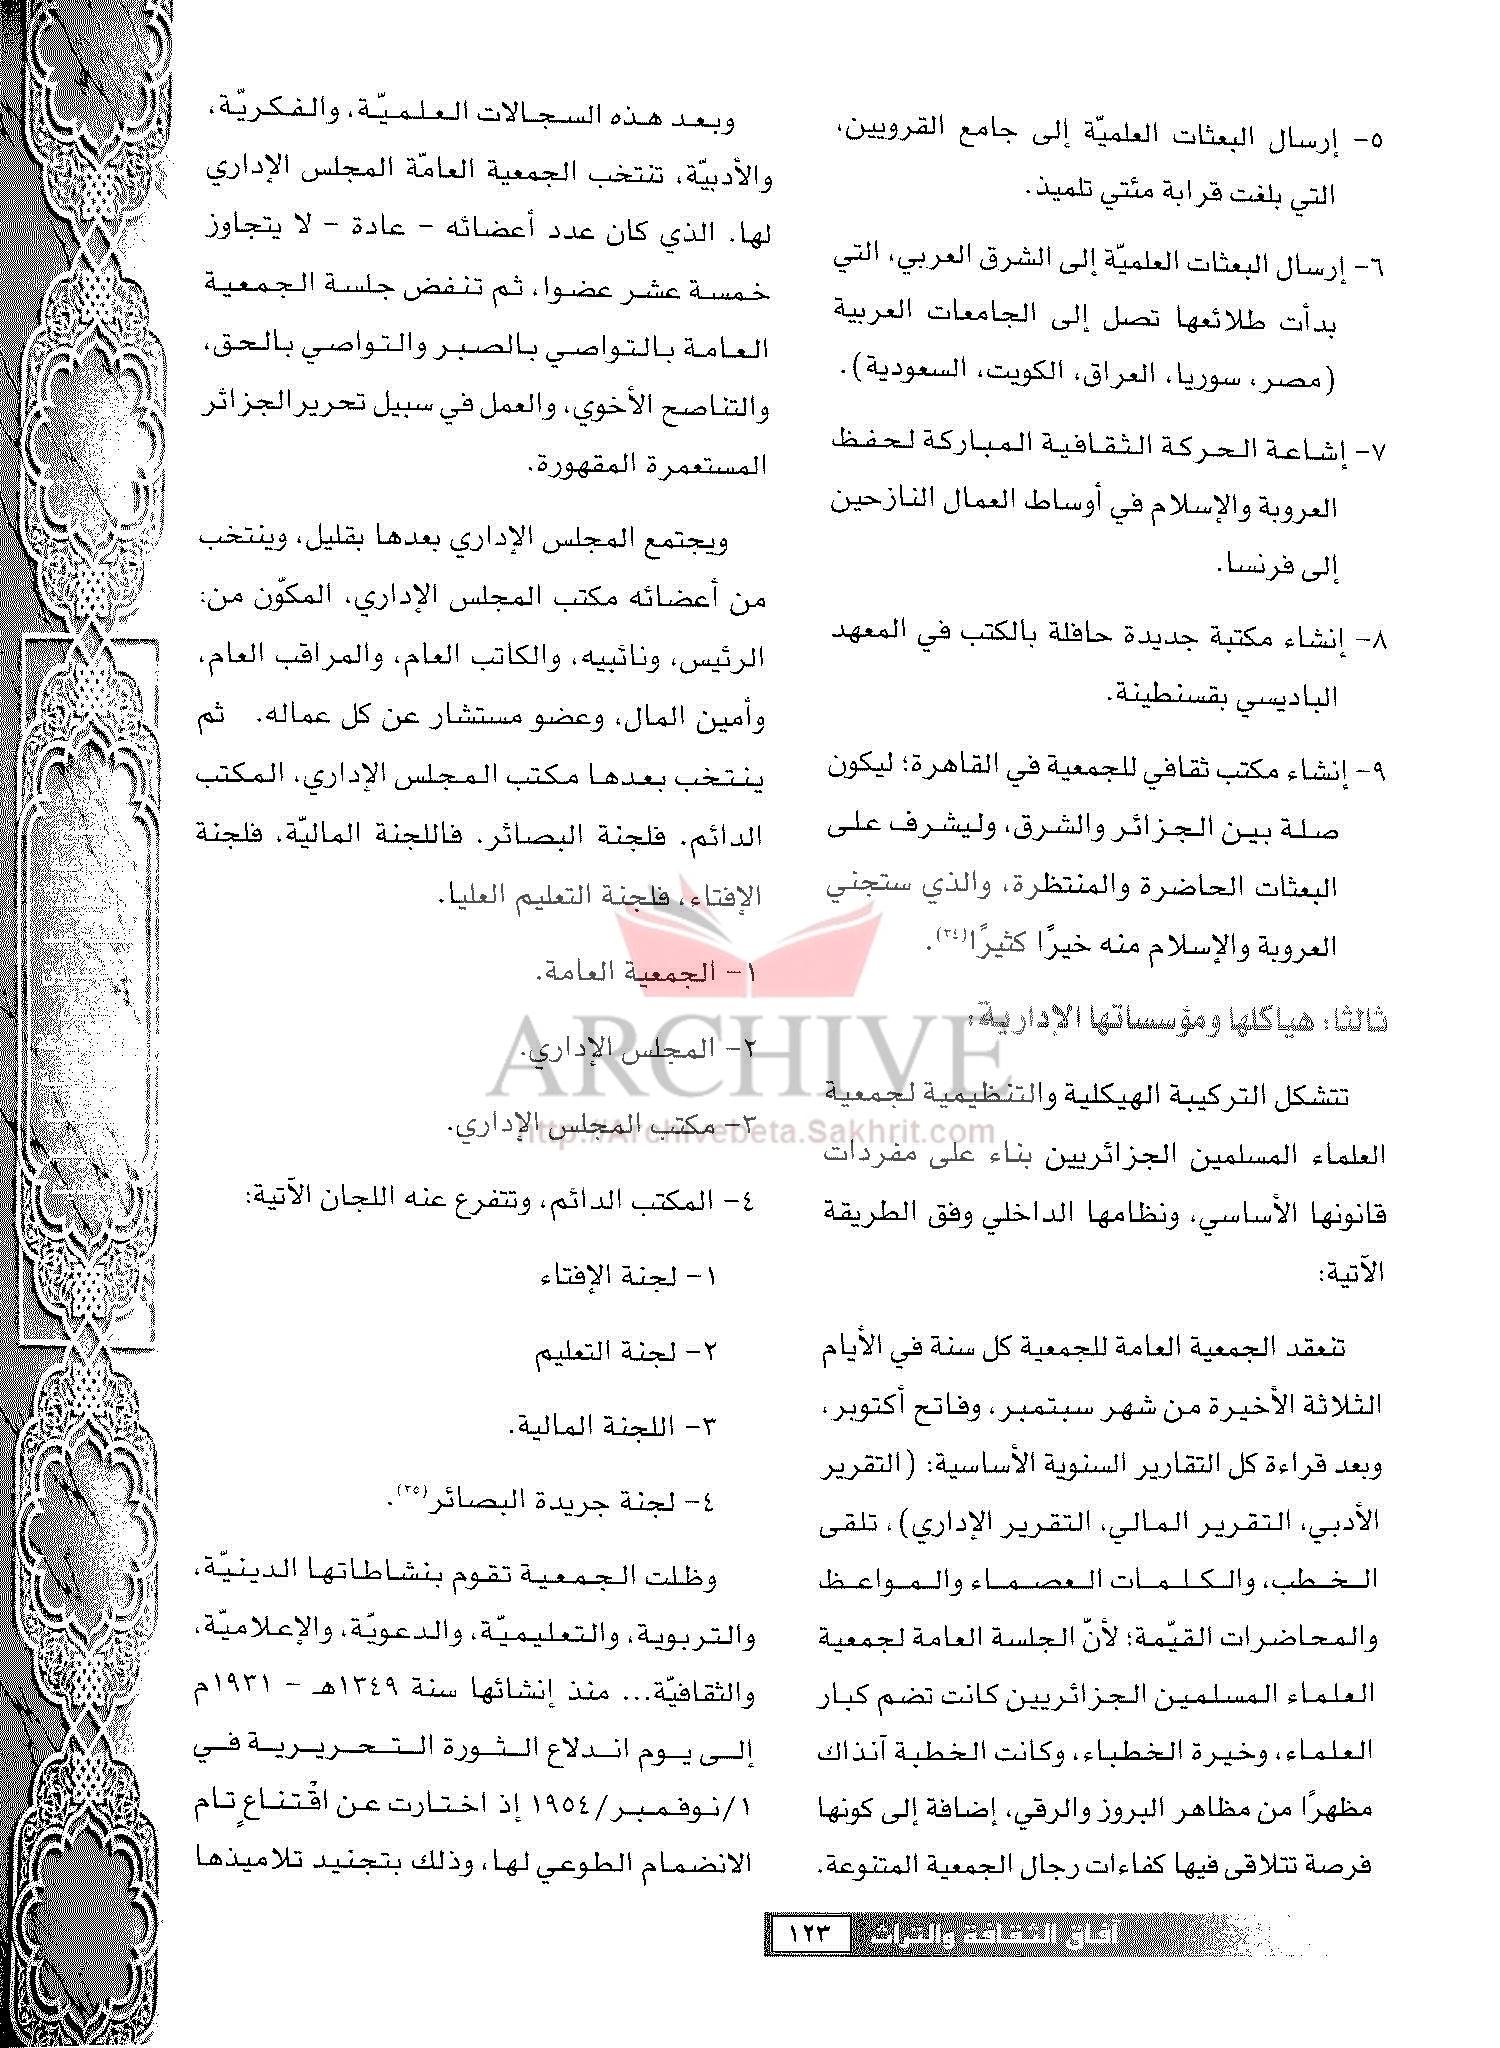 ٥- إرسال البعثات العلميّة إلى جامع القرويين،
التي بلغت قرابة مئتي تلميذ.
٦- إرسال البعثات العلميّة إلى الشرق العربي، التي
بدأت طلائعها تصل إلى الجامعات العربية
(مصر، سوريا، العراق، الكويت، السعودية).
٧- إشاعة الحركة الثقافية المباركة لحفظ
العروبة والإسلام في أوساط العمال النازحين
إلى فرنسا.
٨- إنشاء مكتبة جديدة حافلة بالكتب في المعهد
الباديسي بقسنطينة.
٩- إنشاء مكتب ثقافي للجمعية في القاهرة؛ ليكون
صلة بين الجزائر والشرق، وليشرف على
البعثات الحاضرة والمنتظرة، والذي ستجني
العروبة والإسلام منه خيرًا كثيرًا(٣٤).
ثالثا: هياكلها ومؤسساتها الإدارية:
تتشكل التركيبة الهيكلية والتنظيمية لجمعية
العلماء المسلمين الجزائريين بناء على مفردات
قانونها الأساسي، ونظامها الداخلي وفق الطريقة
الآتية:
تنعقد الجمعية العامة للجمعية كل سنة في الأيام
الثلاثة الأخيرة من شهر سبتمبر، وفاتح أكتوبر،
وبعد قراءة كل التقارير السنوية الأساسية: (التقرير
الأدبي، التقرير المالي، التقرير الإداري)، تلقى
الخطب، والكلمات العصماء والمواعظ
والمحاضرات القيّمة؛ لأنّ الجلسة العامة لجمعية
العلماء المسلمين الجزائريين كانت تضم كبار
العلماء، وخيرة الخطباء، وكانت الخطبة آنذاك
مظهرًا من مظاهر البروز والرقي، إضافة إلى كونها
فرصة تتلاقى فيها كفاءات رجال الجمعية المتنوعة.
وبعد هذه السجالات العلميّة، والفكريّة،
والأدبيّة، تنتخب الجمعية العامّة المجلس الإداري
لها. الذي كان عدد أعضائه - عادة - لا يتجاوز
خمسة عشر عضوا، ثم تنفض جلسة الجمعية
العامة بالتواصي بالصبر والتواصي بالحق،
والتناصح الأخوي، والعمل في سبيل تحرير الجزائر
المستعمرة المقهورة.
ويجتمع المجلس الإداري بعدها بقليل، وينتخب
من أعضائه مكتب المجلس الإداري، المكوّن من:
الرئيس، ونائبيه، والكاتب العام، والمراقب العام،
وأمين المال، وعضو مستشار عن كل عماله. ثم
ينتخب بعدها مكتب المجلس الإداري، المكتب
الدائم. فلجنة البصائر. فاللجنة الماليّة، فلجنة
الإفتاء، فلجنة التعليم العليا.
١- الجمعية العامة.
٢- المجلس الإداري.
٣- مكتب المجلس الإداري.
٤- المكتب الدائم، وتتفرع عنه اللجان الآتية:
١- لجنة الإفتاء
٢- لجنة التعليم
٣- اللجنة المالية.
٤- لجنة جريدة البصائر(٣٥).
وظلت الجمعية تقوم بنشاطاتها الدينيّة،
والتربوية، والتعليميّة، والدعويّة، والإعلاميّة،
والثقافيّة... منذ إنشائها سنة ١٣٤٩هـ - ١٩٣١م
إلى يوم اندلاع الثورة التحريرية في
١/نوفمبر/١٩٥٤ إذ اختارت عن اقْتناعٍ تام
الانضمام الطوعي لها، وذلك بتجنيد تلاميذها
ARCHIVE
http://Archivebeta.Sakhrit.com
آفاق الثقافة والتراث ١٢٣